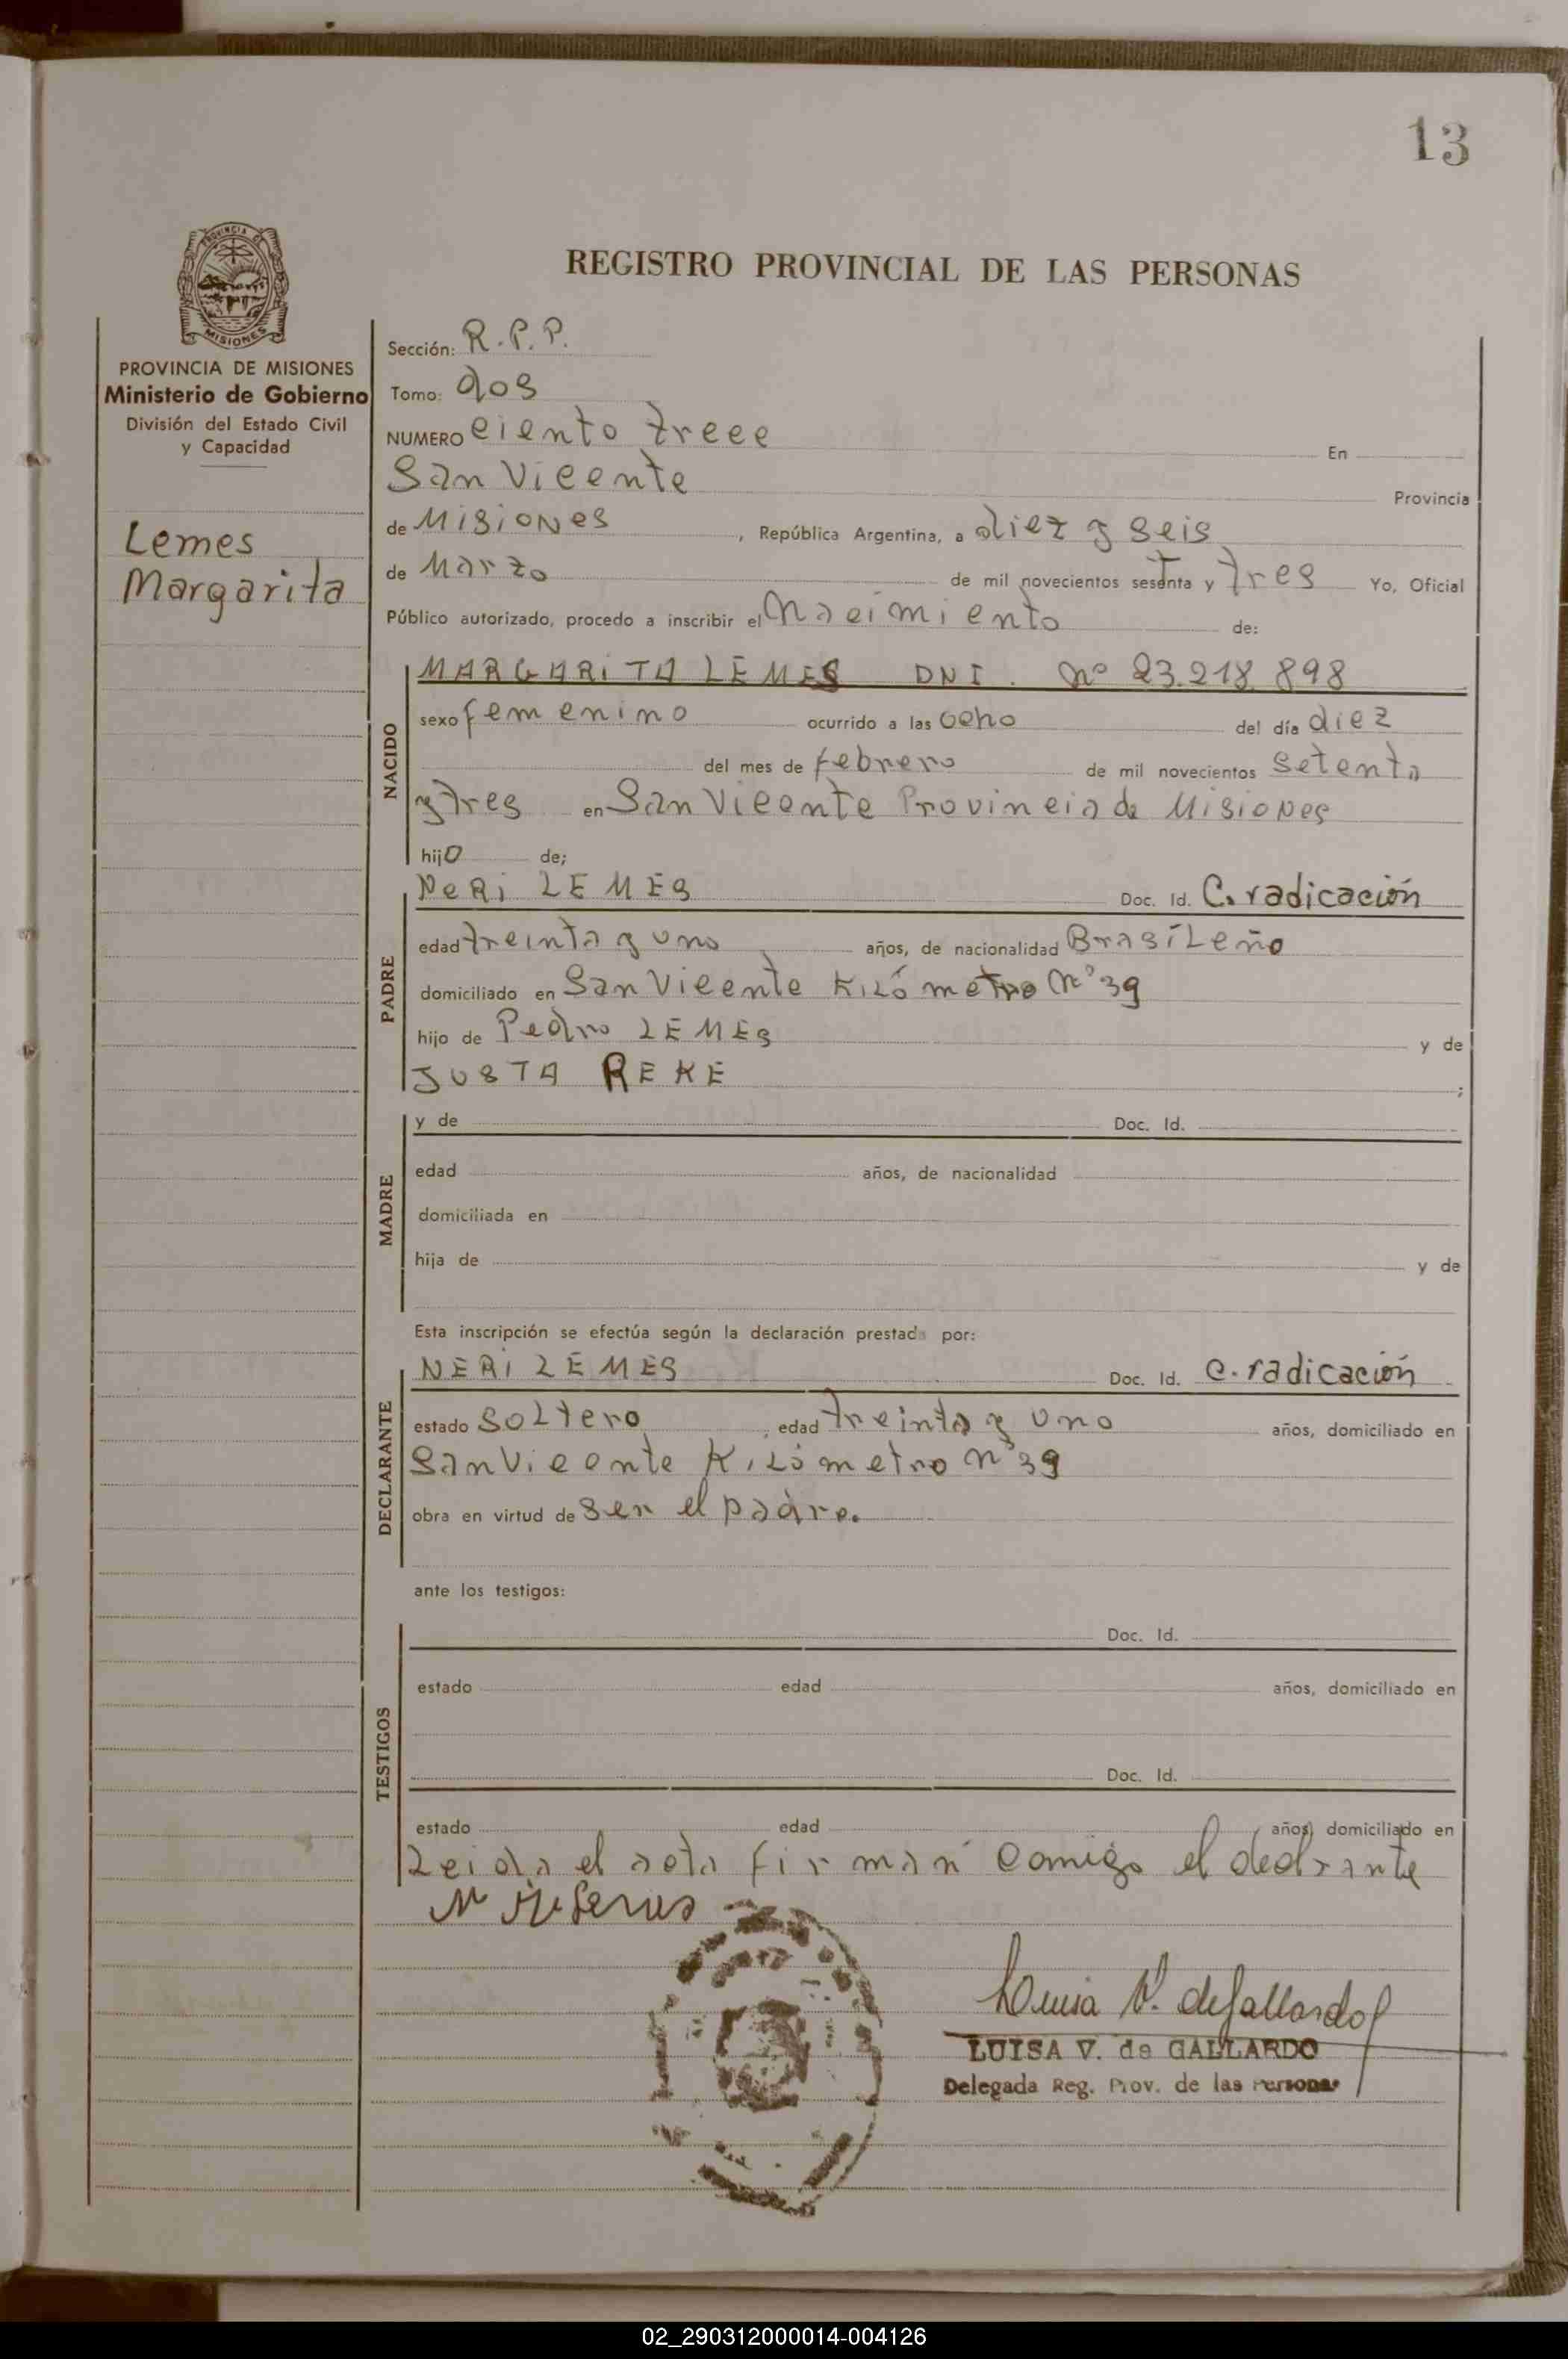 13
PROVINCIA DE
MISIONES
PROVINCIA DE MISIONES
Ministerio de Gobierno
División del Estado Civil
y Capacidad
Lemes
Margarita
REGISTRO PROVINCIAL DE LAS PERSONAS
Sección: R.P.P.
Tomo: dos
NUMERO ciento trece En
San Vicente Provincia
de Misiones, República Argentina, a diez y seis
de Marzo de mil novecientos setenta y tres Yo, Oficial
Público autorizado, procedo a inscribir el Nacimiento de:
NACIDO
MARGARITA LEMES DNI. Nº 23.218.898
sexo femenino ocurrido a las ocho del día diez
del mes de febrero de mil novecientos setenta
y tres en San Vicente Provincia de Misiones
hijo de;
PADRE
NERI LEMES Doc. Id. C. radicación
edad treinta y uno años, de nacionalidad Brasíleño
domiciliado en San Vicente Kilómetro Nº 39
hijo de Pedro LEMES y de
JUSTA REKE ;
MADRE
y de Doc. Id.
edad años, de nacionalidad
domiciliada en
hija de y de
Esta inscripción se efectúa según la declaración prestada por:
DECLARANTE
NERI LEMES Doc. Id. C. radicación
estado soltero edad treinta y uno años, domiciliado en
San Vicente Kilómetro Nº 39
obra en virtud de ser el padre.
ante los testigos:
TESTIGOS
Doc. Id.
estado edad años, domiciliado en
Doc. Id.
estado edad años, domiciliado en
Leida el acta firman comigo el declarante
Luisa V. de Gallardo
LUISA V. de GALLARDO
Delegada Reg. Prov. de las Personas
02_290312000014-004126